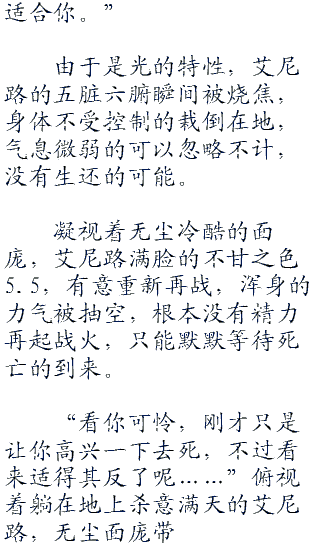 适合你。”
由于是光的特性，艾尼
路的五脏六腑瞬间被烧焦，
身体不受控制的栽倒在地，
气息微弱的可以忽略不计，
没有生还的可能。
凝视着无尘冷酷的面
庞，艾尼路满脸的不甘之色
5.5，有意重新再战，浑身的
力气被抽空，根本没有精力
再起战火，只能默默等待死
亡的到来。
“看你可怜，刚才只是
让你高兴一下去死，不过看
来适得其反了呢……”俯视
着躺在地上杀意满天的艾尼
路，无尘面庞带